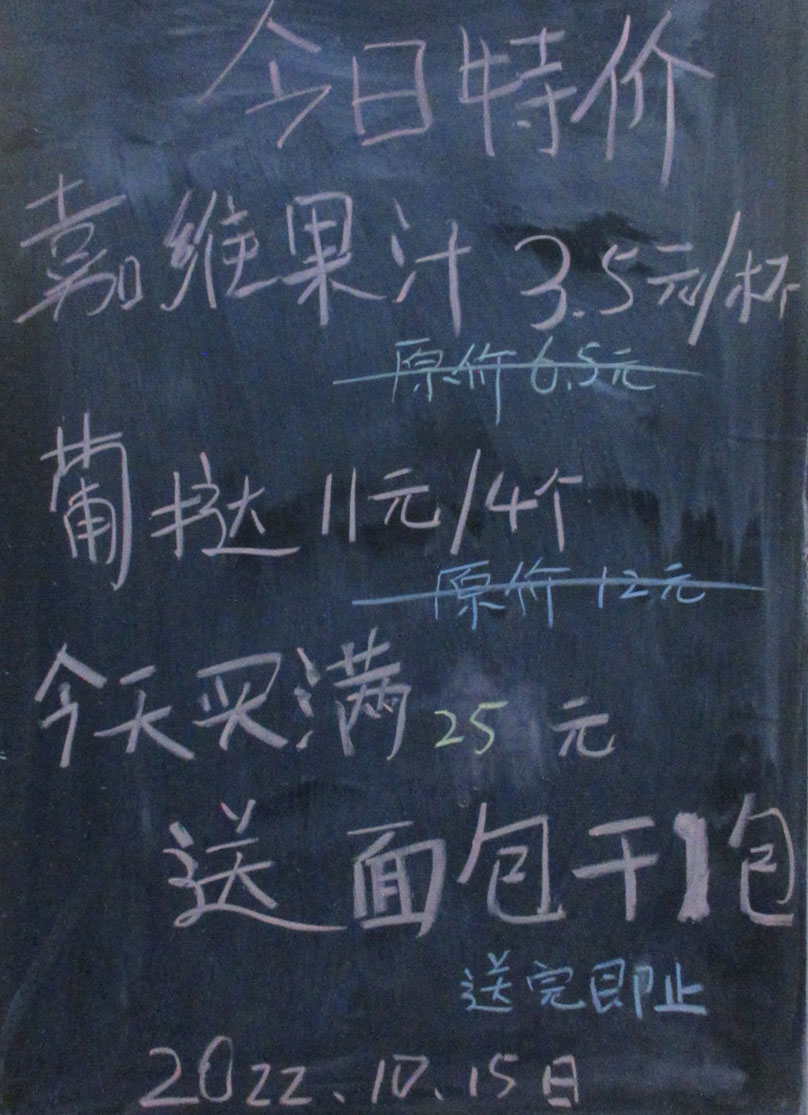 今日特价
嘉维果汁 3.5元/杯
原价6.5元
葡挞 11元/4个
原价12元
今天买满 25 元
送 面包干1包
送完即止
2022.10.15日